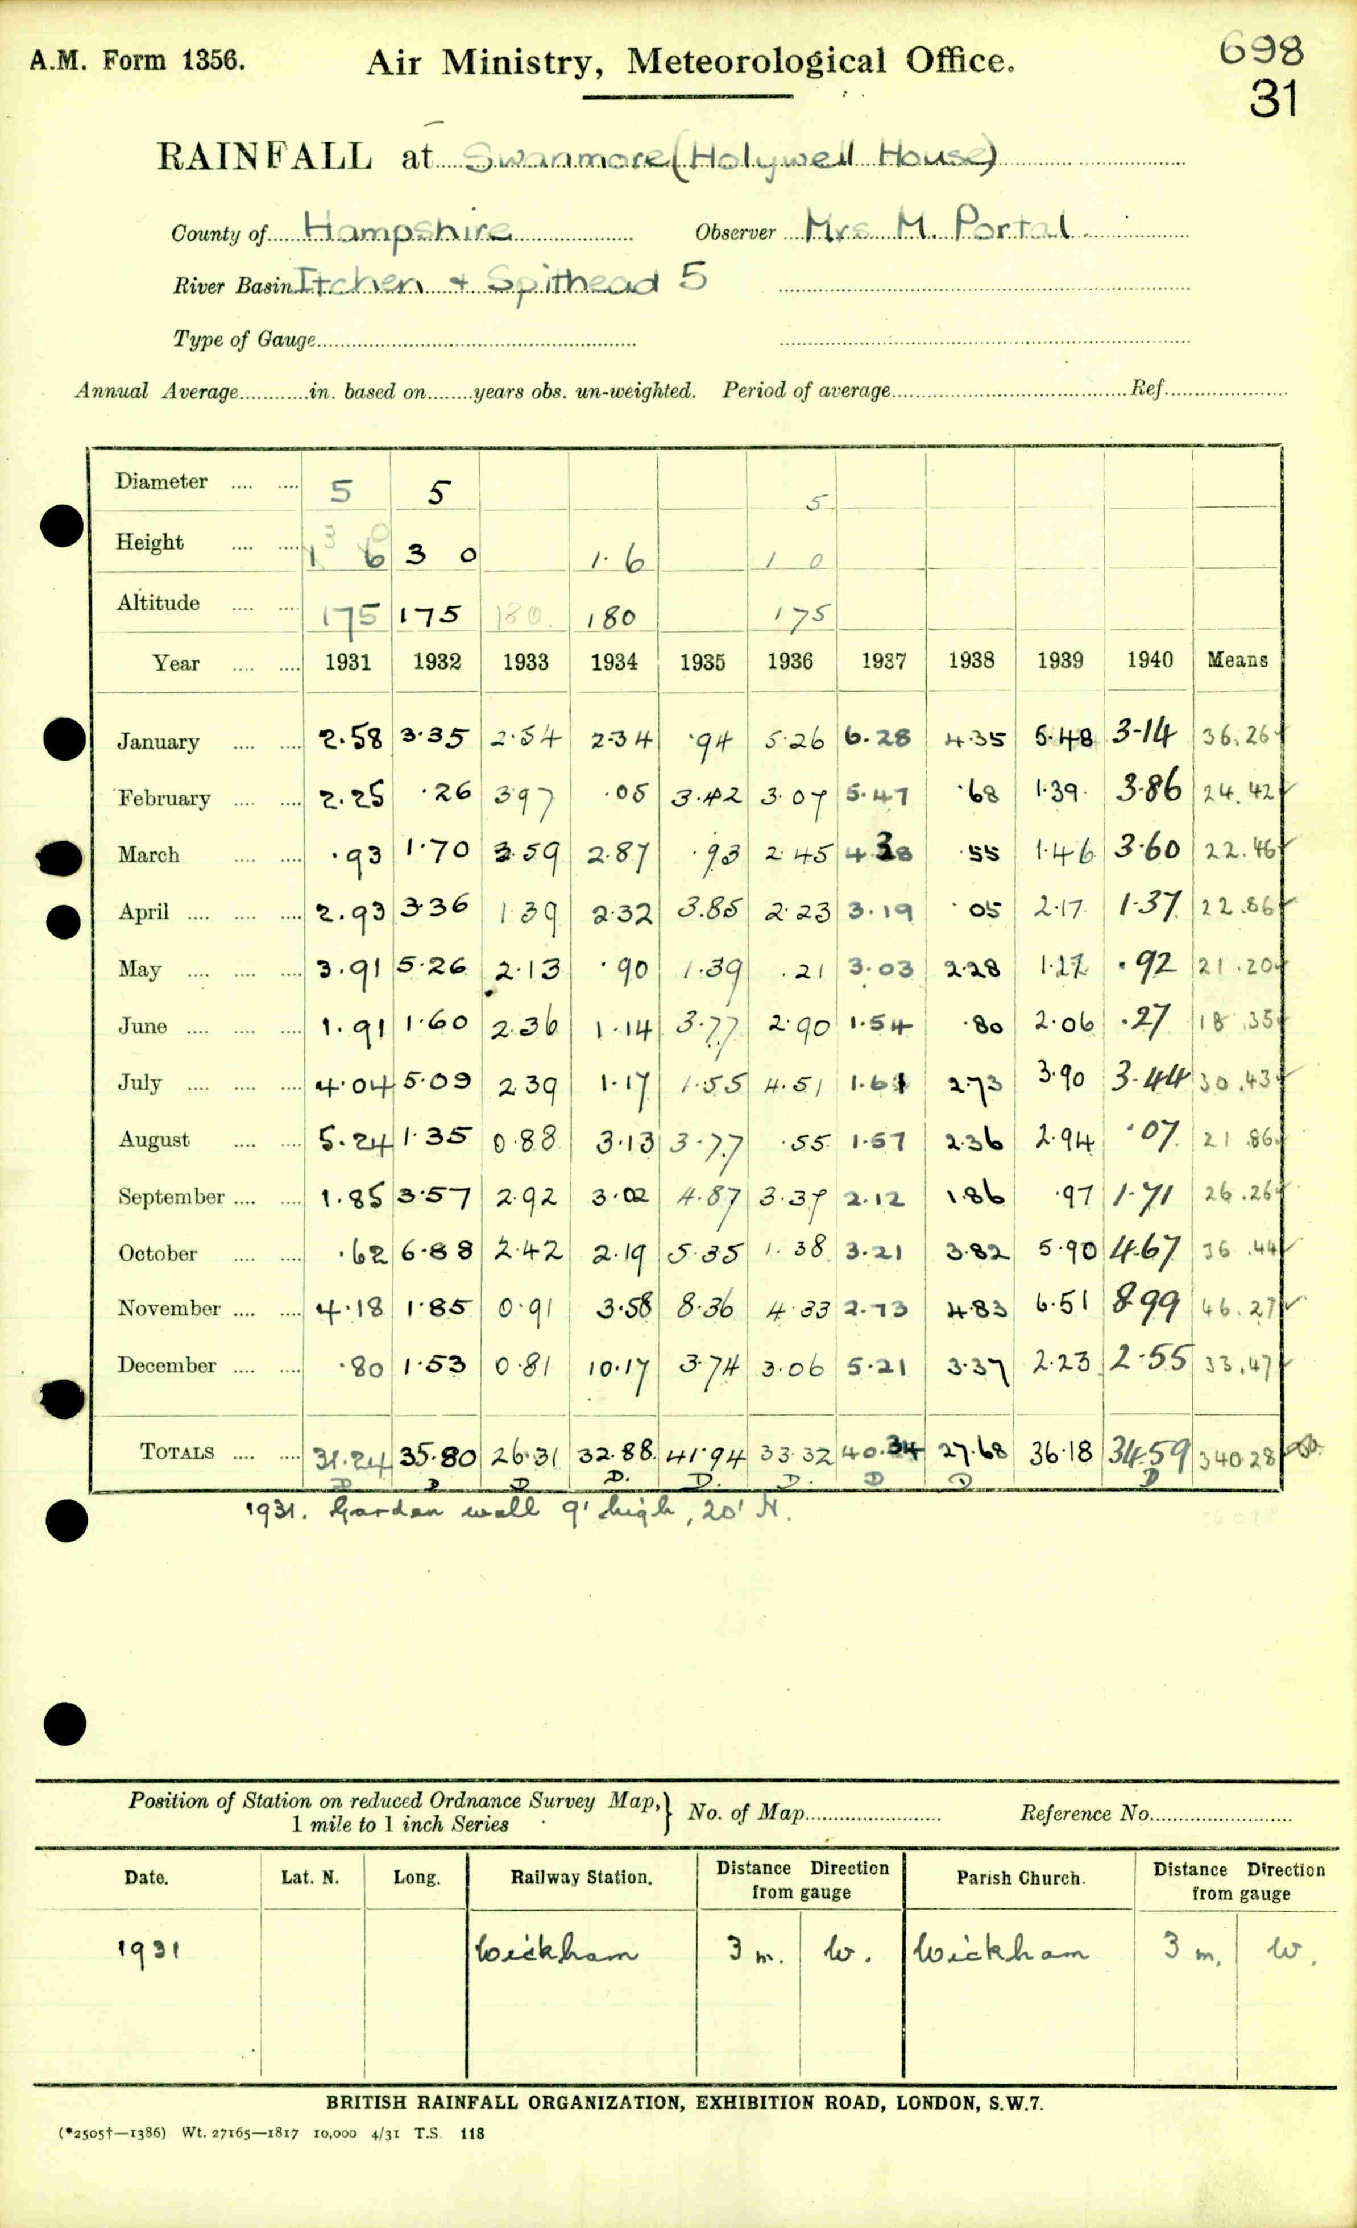 A.M. Form 1356.
Air Ministry, Meteorological Office.
698
31
RAINFALL at Swanmore (Holywell House)
County of Hampshire Observer Mrs M. Portal
River Basin Itchen + Spithead 5
Type of Gauge
Annual Average in. based on years obs. un-weighted. Period of average Ref.
Diameter 5 5 5
Height 1 6 3 0 1·6 1 0
Altitude 175 175 180 180 175
Year 1931 1932 1933 1934 1935 1936 1937 1938 1939 1940 Means
January 2.58 3.35 2.54 2.34 .94 5.26 6.28 4.35 5.48 3.14 36.26
February 2.25 .26 3.97 .05 3.42 3.07 5.47 .68 1.39 3.86 24.42
March .93 1.70 3.59 2.87 .93 2.45 4.38 .55 1.46 3.60 22.46
April 2.93 3.36 1.39 2.32 3.85 2.23 3.19 .05 2.17 1.37 22.86
May 3.91 5.26 2.13 .90 1.39 .21 3.03 2.28 1.17 .92 21.20
June 1.91 1.60 2.36 1.14 3.77 2.90 1.54 .80 2.06 .27 18.35
July 4.04 5.09 2.39 1.17 1.55 4.51 1.61 2.73 3.90 3.44 30.43
August 5.24 1.35 0.88 3.13 3.77 .55 1.57 2.36 2.94 .07 21.86
September 1.85 3.57 2.92 3.02 4.87 3.37 2.12 1.86 .97 1.71 26.26
October .62 6.88 2.42 2.19 5.35 1.38 3.21 3.82 5.90 4.67 36.44
November 4.18 1.85 0.91 3.58 8.36 4.33 2.73 4.83 6.51 8.99 46.27
December .80 1.53 0.81 10.17 3.74 3.06 5.21 3.37 2.23 2.55 33.47
TOTALS 31.24 35.80 26.31 32.88 41.94 33.32 40.34 27.68 36.18 34.59 340.28
D D D D. D. D. D D D
1931. Garden wall 9' high, 20' N.
Position of Station on reduced Ordnance Survey Map, 1 mile to 1 inch Series } No. of Map Reference No.
Date. Lat. N. Long. Railway Station. Distance Direction from gauge Parish Church. Distance Direction from gauge
1931 Wickham 3 m. W. Wickham 3 m. W.
BRITISH RAINFALL ORGANIZATION, EXHIBITION ROAD, LONDON, S.W.7.
(*2505†—1386) Wt. 27165—1817 10,000 4/31 T.S. 118